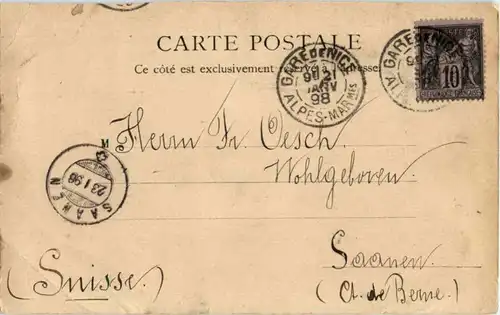 CARTE POSTALE
Ce côté est exclusivement réservé à l'adresse
GARE DE NICE
21
JANV
98
ALPES-MARMES
GARE DE NICE
10
M
Herrn Fr. Oesch.
Wohlgeboren.
SAANEN
23 I 98
Saanen.
(Suisse.)
(Ct. de Berne.)